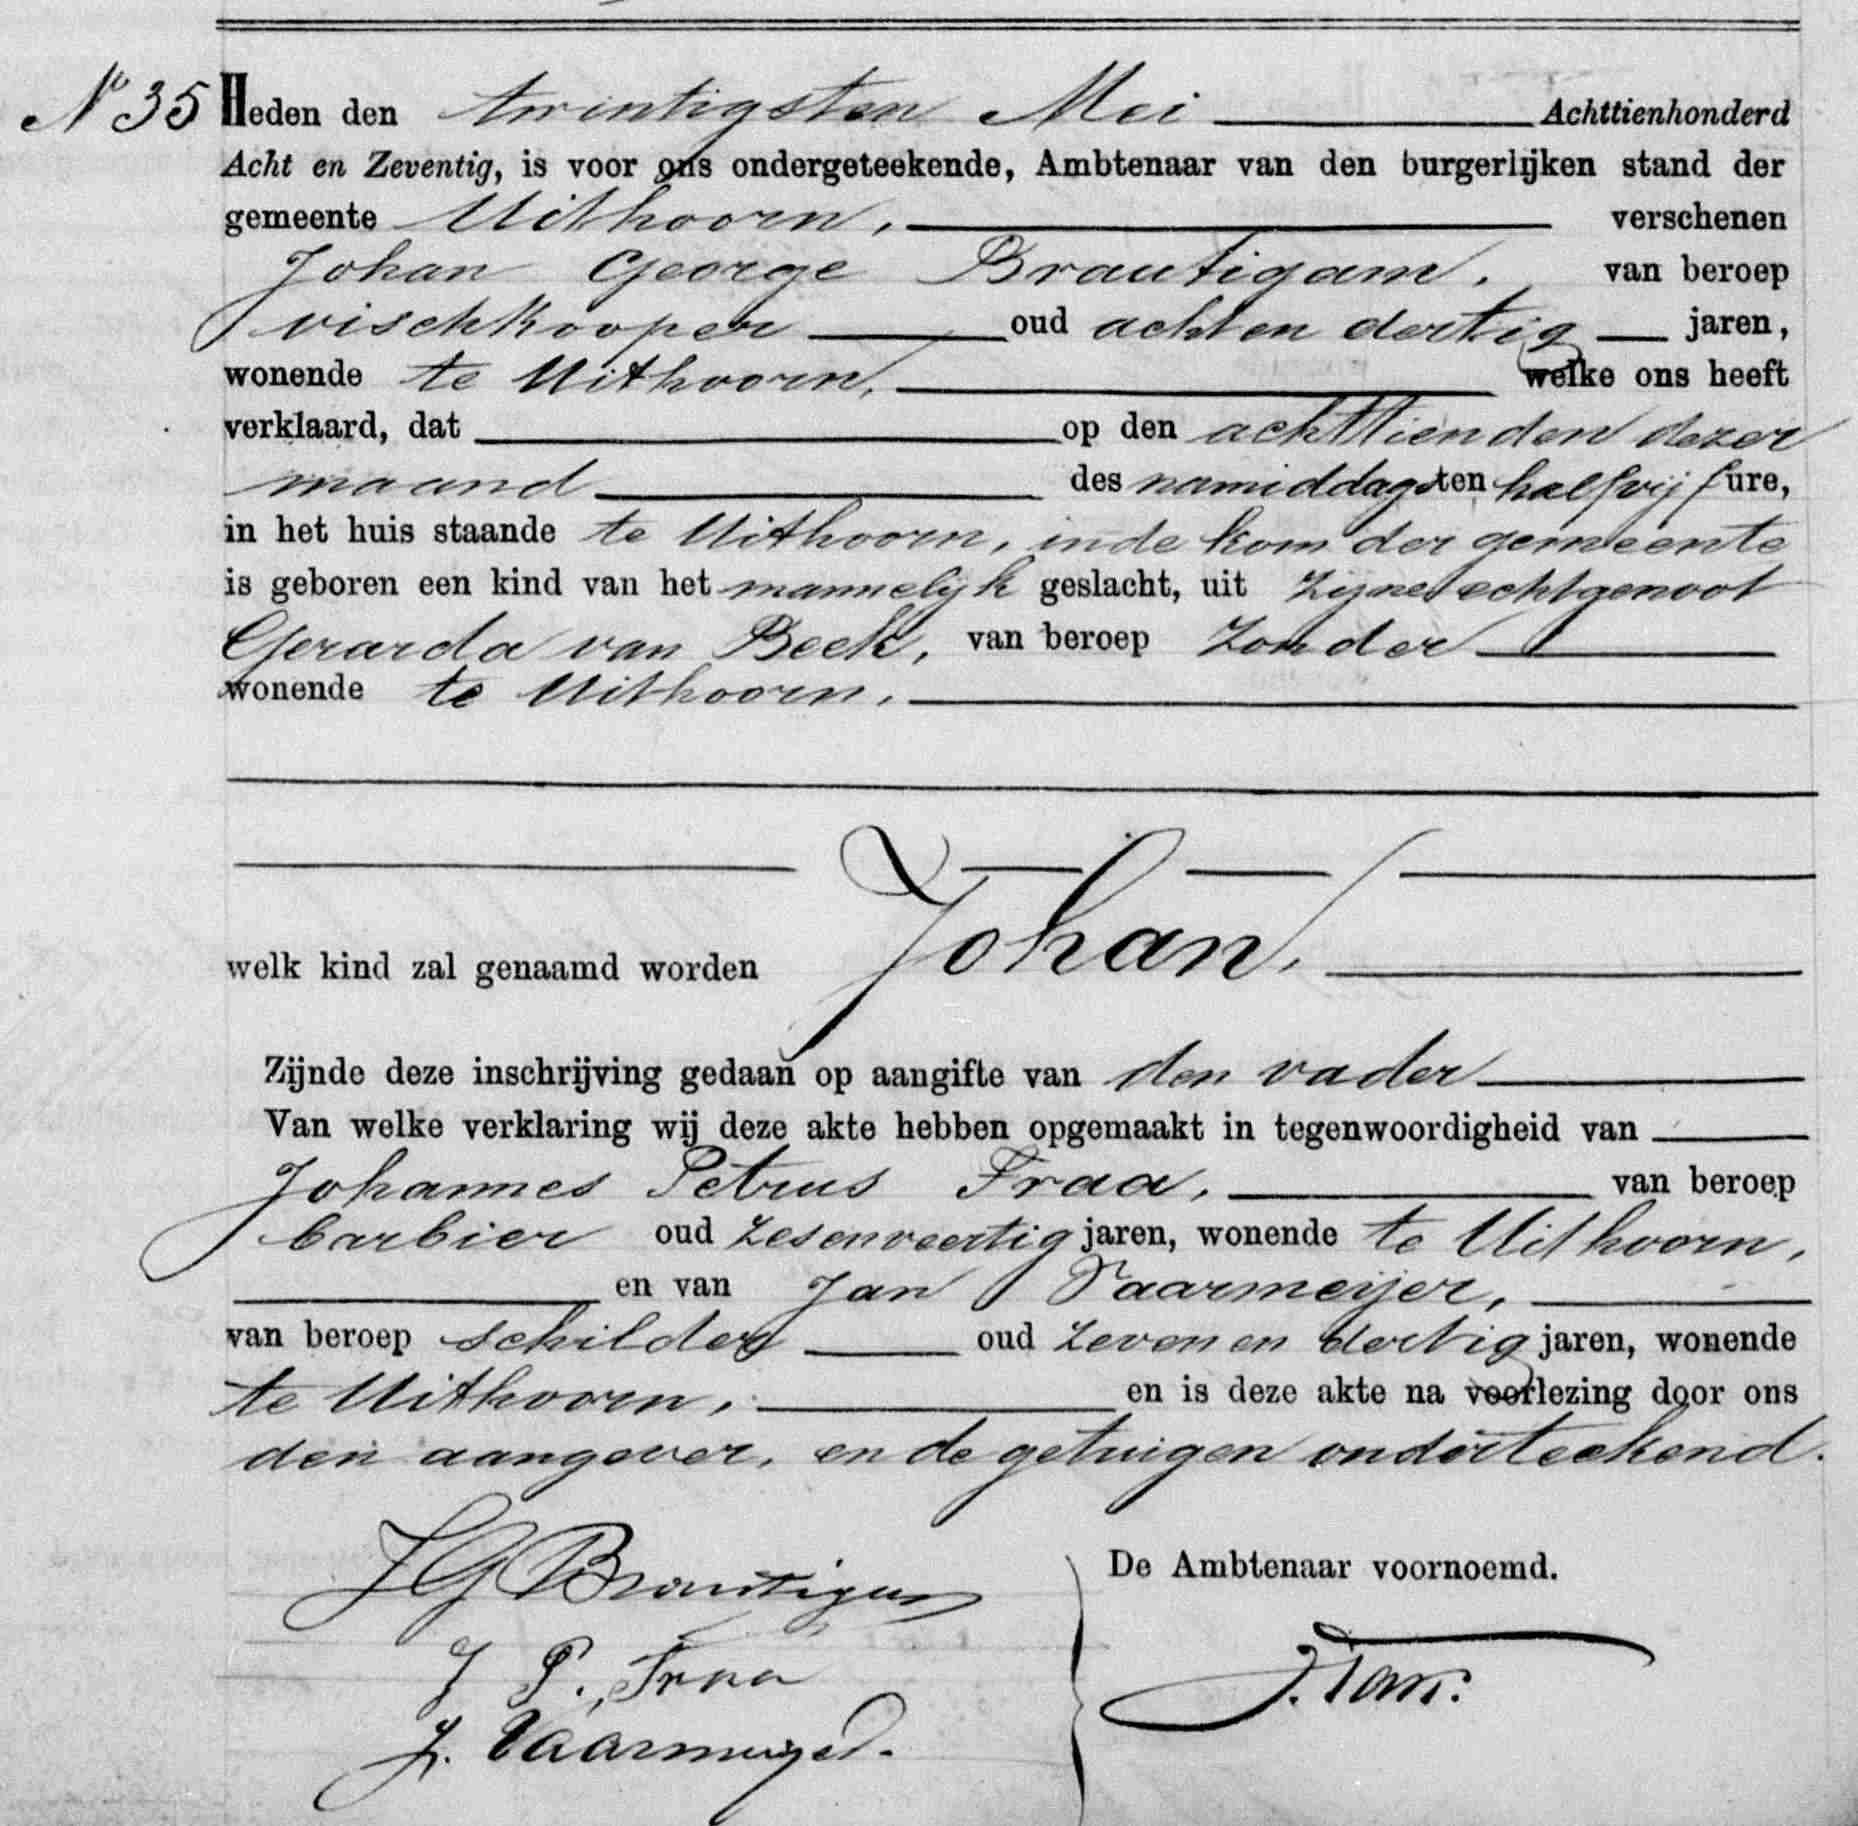 No 35 Heden den twintigsten Mei Achttienhonderd
Acht en Zeventig, is voor ons ondergeteekende, Ambtenaar van den burgerlijken stand der
gemeente Uithoorn, verschenen
Johan George Brautigam, van beroep
vischkooper oud acht en dertig jaren,
wonende te Uithoorn, welke ons heeft
verklaard, dat op den achttienden dezer
maand des namiddags ten half vijf ure,
in het huis staande te Uithoorn, in de kom der gemeente
is geboren een kind van het mannelijk geslacht, uit zijne echtgenoot
Gerarda van Beek, van beroep zonder
wonende te Uithoorn,
welk kind zal genaamd worden Johan,
Zijnde deze inschrijving gedaan op aangifte van den vader
Van welke verklaring wij deze akte hebben opgemaakt in tegenwoordigheid van
Johannes Petrus Fraa, van beroep
barbier oud zesenveertig jaren, wonende te Uithoorn,
en van Jan Vaarmeijer,
van beroep schilder oud zeven en dertig jaren, wonende
te Uithoorn, en is deze akte na voorlezing door ons
den aangever, en de getuigen onderteekend.
JG Brautigam De Ambtenaar voornoemd.
J P. Fraa
J. Vaarmeijer.